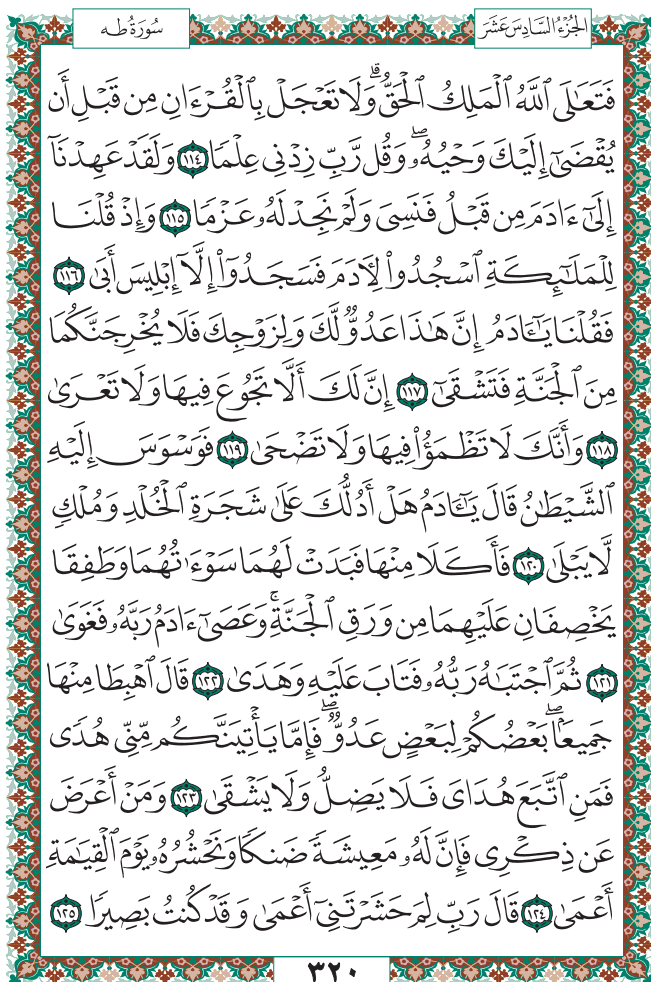 الجُزْءُ السَّادِسَ عَشَرَ
سُورَةُ طه
فَتَعَٰلَى ٱللَّهُ ٱلْمَلِكُ ٱلْحَقُّۗ وَلَا تَعْجَلْ بِٱلْقُرْءَانِ مِن قَبْلِ أَن
يُقْضَىٰٓ إِلَيْكَ وَحْيُهُۥۖ وَقُل رَّبِّ زِدْنِى عِلْمًا ١١٤ وَلَقَدْ عَهِدْنَآ
إِلَىٰٓ ءَادَمَ مِن قَبْلُ فَنَسِىَ وَلَمْ نَجِدْ لَهُۥ عَزْمًا ١١٥ وَإِذْ قُلْنَا
لِلْمَلَٰٓئِكَةِ ٱسْجُدُوا۟ لِءَادَمَ فَسَجَدُوٓا۟ إِلَّآ إِبْلِيسَ أَبَىٰ ١١٦
فَقُلْنَا يَٰٓـَٔادَمُ إِنَّ هَٰذَا عَدُوٌّ لَّكَ وَلِزَوْجِكَ فَلَا يُخْرِجَنَّكُمَا
مِنَ ٱلْجَنَّةِ فَتَشْقَىٰٓ ١١٧ إِنَّ لَكَ أَلَّا تَجُوعَ فِيهَا وَلَا تَعْرَىٰ
١١٨ وَأَنَّكَ لَا تَظْمَؤُا۟ فِيهَا وَلَا تَضْحَىٰ ١١٩ فَوَسْوَسَ إِلَيْهِ
ٱلشَّيْطَٰنُ قَالَ يَٰٓـَٔادَمُ هَلْ أَدُلُّكَ عَلَىٰ شَجَرَةِ ٱلْخُلْدِ وَمُلْكٍ
لَّا يَبْلَىٰ ١٢٠ فَأَكَلَا مِنْهَا فَبَدَتْ لَهُمَا سَوْءَٰتُهُمَا وَطَفِقَا
يَخْصِفَانِ عَلَيْهِمَا مِن وَرَقِ ٱلْجَنَّةِۚ وَعَصَىٰٓ ءَادَمُ رَبَّهُۥ فَغَوَىٰ
١٢١ ثُمَّ ٱجْتَبَٰهُ رَبُّهُۥ فَتَابَ عَلَيْهِ وَهَدَىٰ ١٢٢ قَالَ ٱهْبِطَا مِنْهَا
جَمِيعًۢاۖ بَعْضُكُمْ لِبَعْضٍ عَدُوٌّۖ فَإِمَّا يَأْتِيَنَّكُم مِّنِّى هُدًى
فَمَنِ ٱتَّبَعَ هُدَاىَ فَلَا يَضِلُّ وَلَا يَشْقَىٰ ١٢٣ وَمَنْ أَعْرَضَ
عَن ذِكْرِى فَإِنَّ لَهُۥ مَعِيشَةً ضَنكًا وَنَحْشُرُهُۥ يَوْمَ ٱلْقِيَٰمَةِ
أَعْمَىٰ ١٢٤ قَالَ رَبِّ لِمَ حَشَرْتَنِىٓ أَعْمَىٰ وَقَدْ كُنتُ بَصِيرًا ١٢٥
٣٢٠